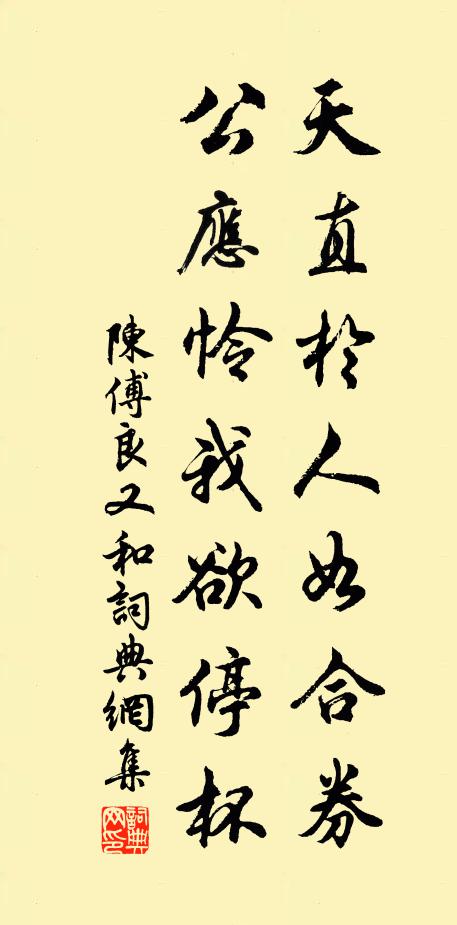 天直於人如合券
公應怜我欲停杯
陳傅良又和詞典網集
詞典网印